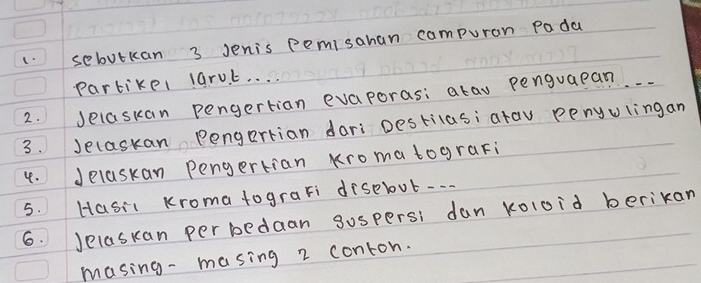 1. sebutkan 3 Jenis Pemisahan campuran Pada
Partikel larut....
2. Jelaskan Pengertian evaporasi atau Penguapan...
3. Jelaskan Pengertian dari Destilasi atau Penywlingan
4. Jelaskan Pengertian Kromatografi
5. Hasil Kromatografi disebut---
6. Jelaskan Perbedaan suspersi dan koloid berikan
masing-masing 2 contoh.